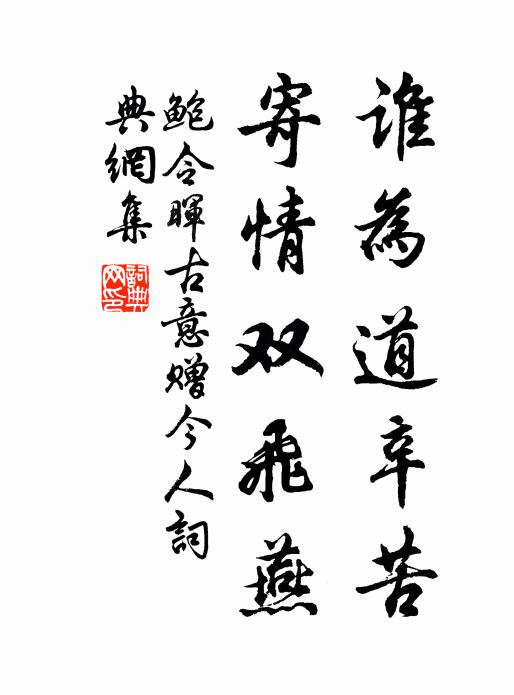 誰為道辛苦
寄情双飛燕
鮑令暉古意贈今人詞
典網集
詞典網印